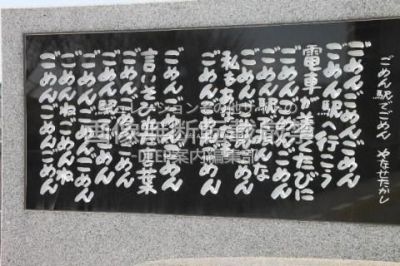 ごめん駅でごめん やなせたかし
ごめんごめんごめん
ごめん駅へ行こう
電車が着くたびに
ごめんごめんごめん
ごめん駅でみんな
私もあなたも
ごめんごめんごめん
ごめんごめんごめん
言いそびれた言葉
ごめん ごめん
ごめん駅でごめん
ごめんごめんごめん
ごめんねごめんね
ごめんごめんごめん